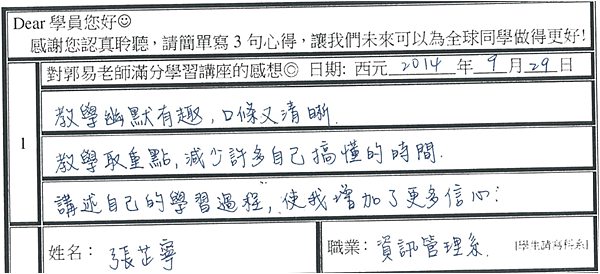 Dear 學員您好☺
感謝您認真聆聽，請簡單寫 3 句心得，讓我們未來可以為全球同學做得更好!
對郭易老師滿分學習講座的感想◎ 日期: 西元 2014 年 9 月 29 日
1
教學幽默有趣，口條又清晰.
教學取重點,減少許多自己搞懂的時間.
講述自己的學習過程，使我增加了更多信心!
姓名： 張芷寧 職業： 資訊管理系. [學生請寫科系]